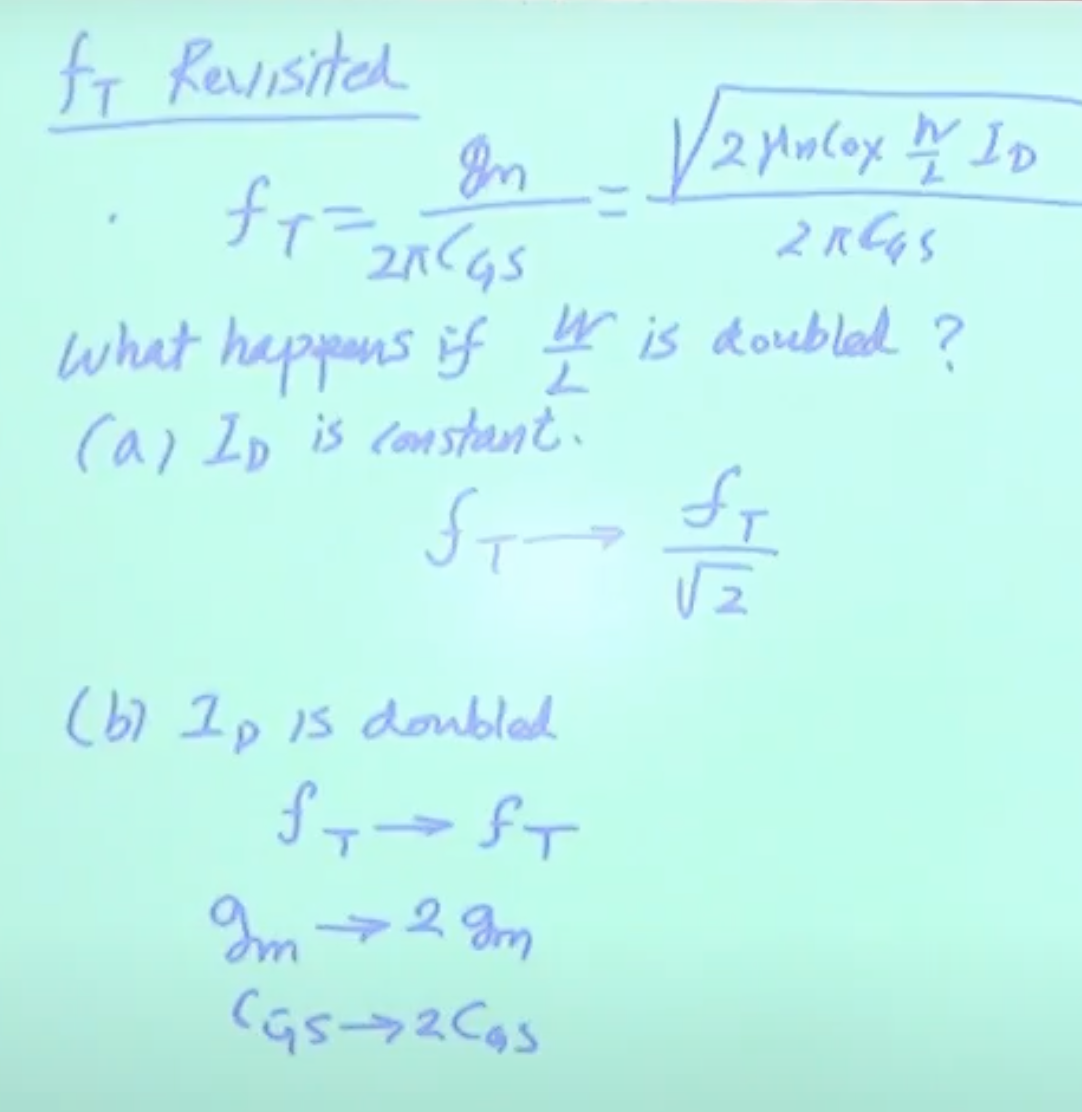 f_T Revisited
f_T = g_m / 2πC_GS = √(2 μ_n C_ox W/L I_D) / 2πC_GS
What happens if W/L is doubled ?
(a) I_D is constant.
f_T → f_T / √2
(b) I_D is doubled
f_T → f_T
g_m → 2 g_m
C_GS → 2 C_GS